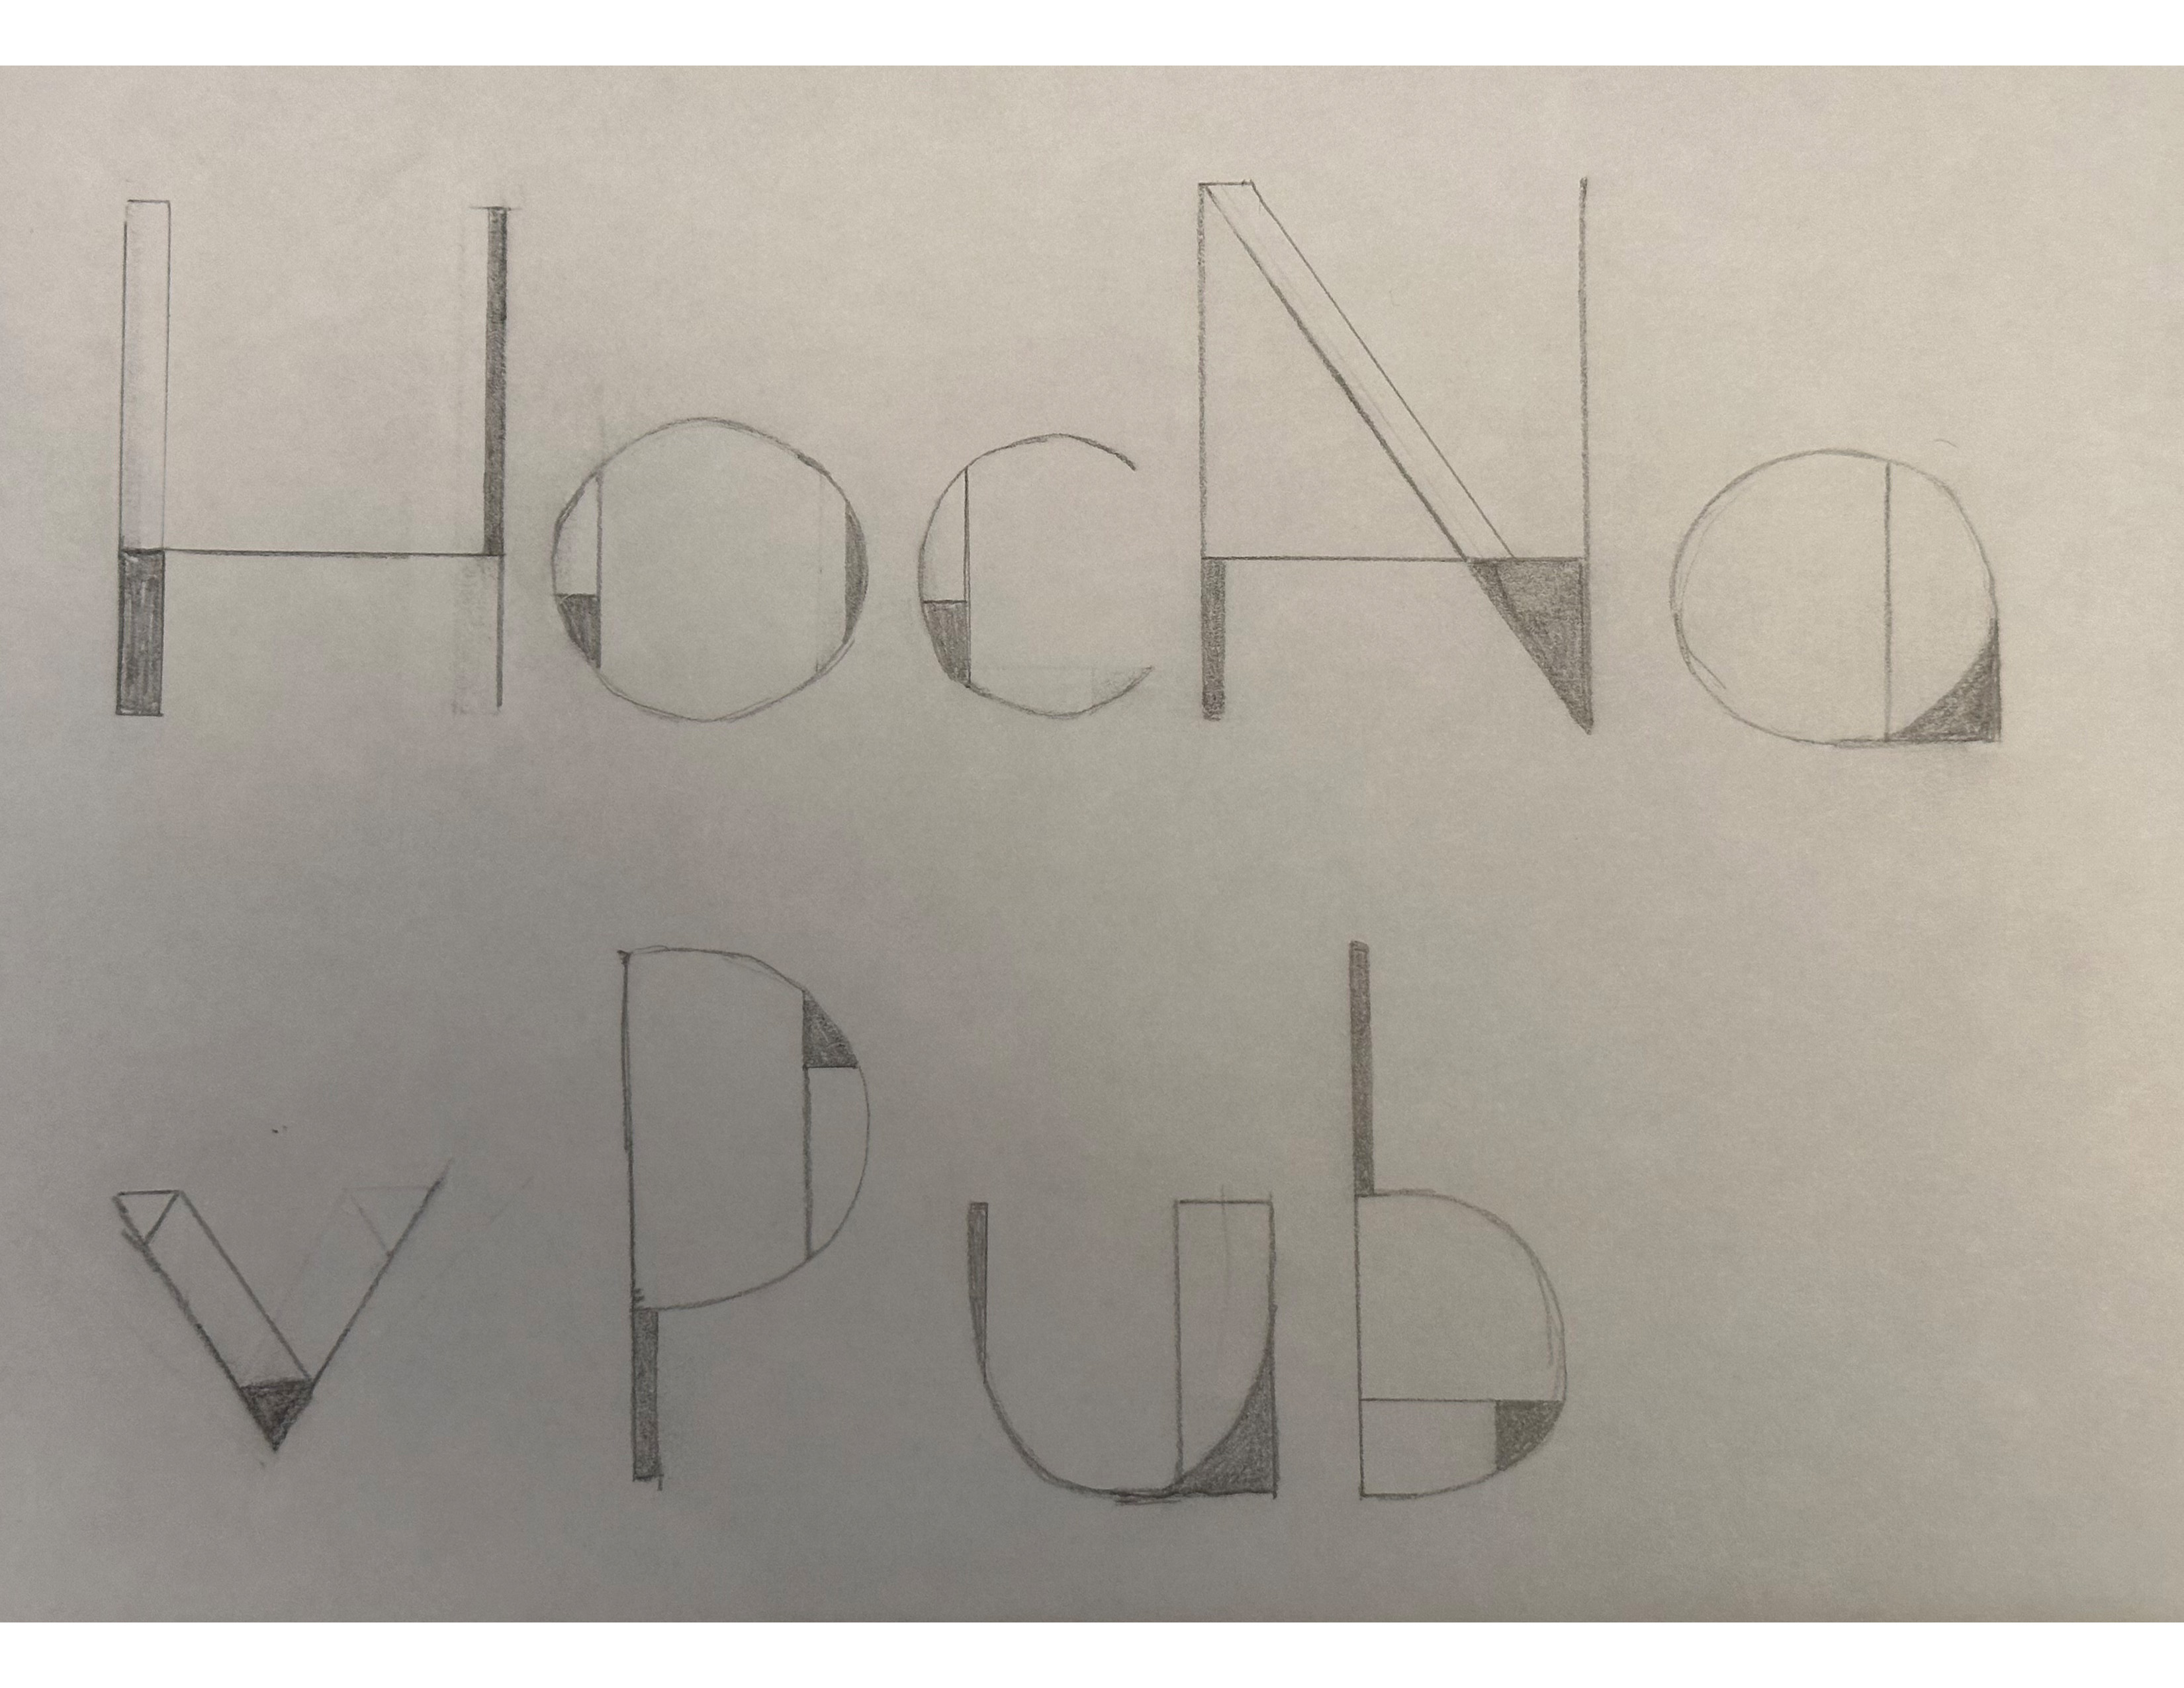 HocNa
vPub